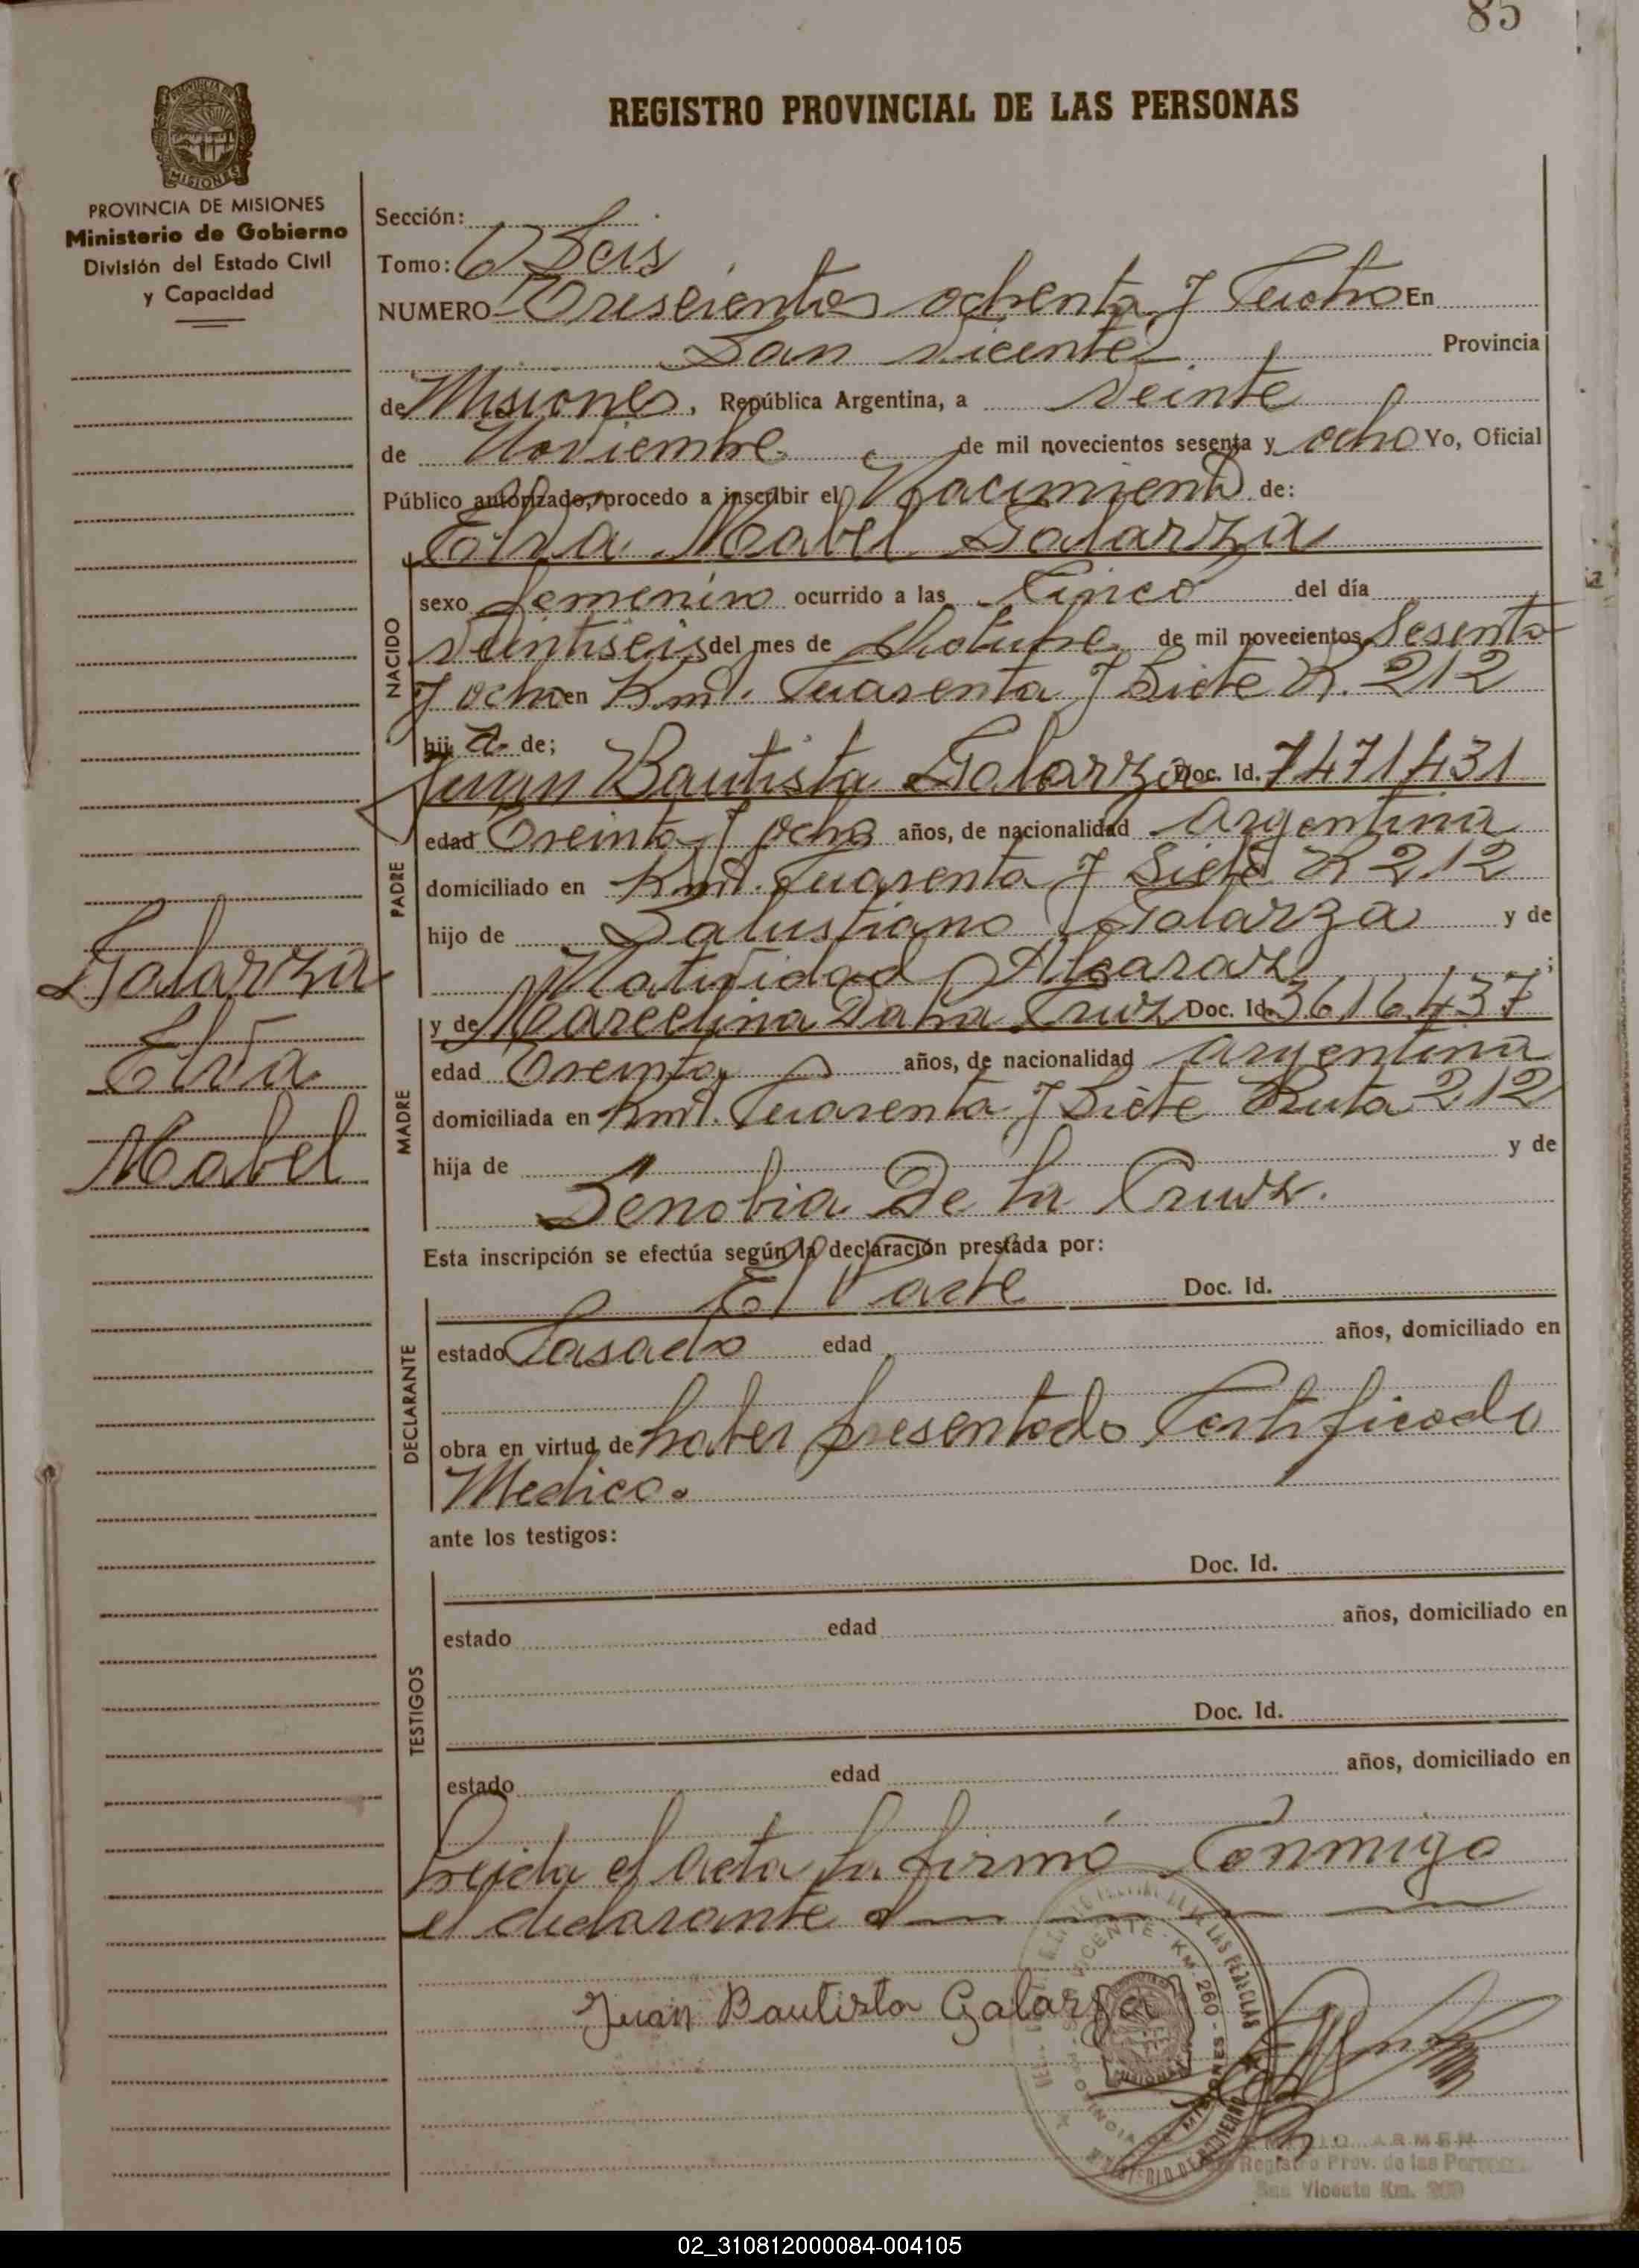 85
REGISTRO PROVINCIAL DE LAS PERSONAS
MISIONES
PROVINCIA DE MISIONES
Ministerio de Gobierno
División del Estado Civil
y Capacidad
Galarza
Elva
Mabel
Sección:
Tomo: 6 Seis
NUMERO Treiscientos ochenta y Cuatro En
San Vicente Provincia
de Misiones, República Argentina, a Veinte
de Noviembre de mil novecientos sesenta y ocho Yo, Oficial
Público autorizado, procedo a inscribir el Nacimiento de:
Elva Mabel Galarza
NACIDO
sexo femenino ocurrido a las Cinco del día
Veintiseis del mes de Octubre de mil novecientos Sesenta
y ocho en Kmt. Cuarenta y Siete R. 212
hij a de;
PADRE
Juan Bautista Galarza Doc. Id. 7471431
edad Treinta y ocho años, de nacionalidad argentina
domiciliado en Kmt. Cuarenta y Siete R 212
hijo de Salustiano Galarza y de
Natividad Alcaraz ;
MADRE
y de Marcelina Cruz Doc. Id. 3.616.437
edad Treinta años, de nacionalidad argentina
domiciliada en Kmt. Cuarenta y Siete Ruta 212
hija de y de
Senobia De la Cruz.
Esta inscripción se efectúa según la declaración prestada por:
DECLARANTE
El Padre Doc. Id.
estado Casado edad años, domiciliado en
obra en virtud de haber presentado Certificado
Medico.
ante los testigos:
TESTIGOS
Doc. Id.
estado edad años, domiciliado en
Doc. Id.
estado edad años, domiciliado en
Leida el acta la firmó Conmigo
el declarante
Juan Bautista Galarza
VICENTE - KM. 260 - MISIONES
MINISTERIO DE GOBIERNO
Registro Prov. de las
San Vicente Km.
02_310812000084-004105